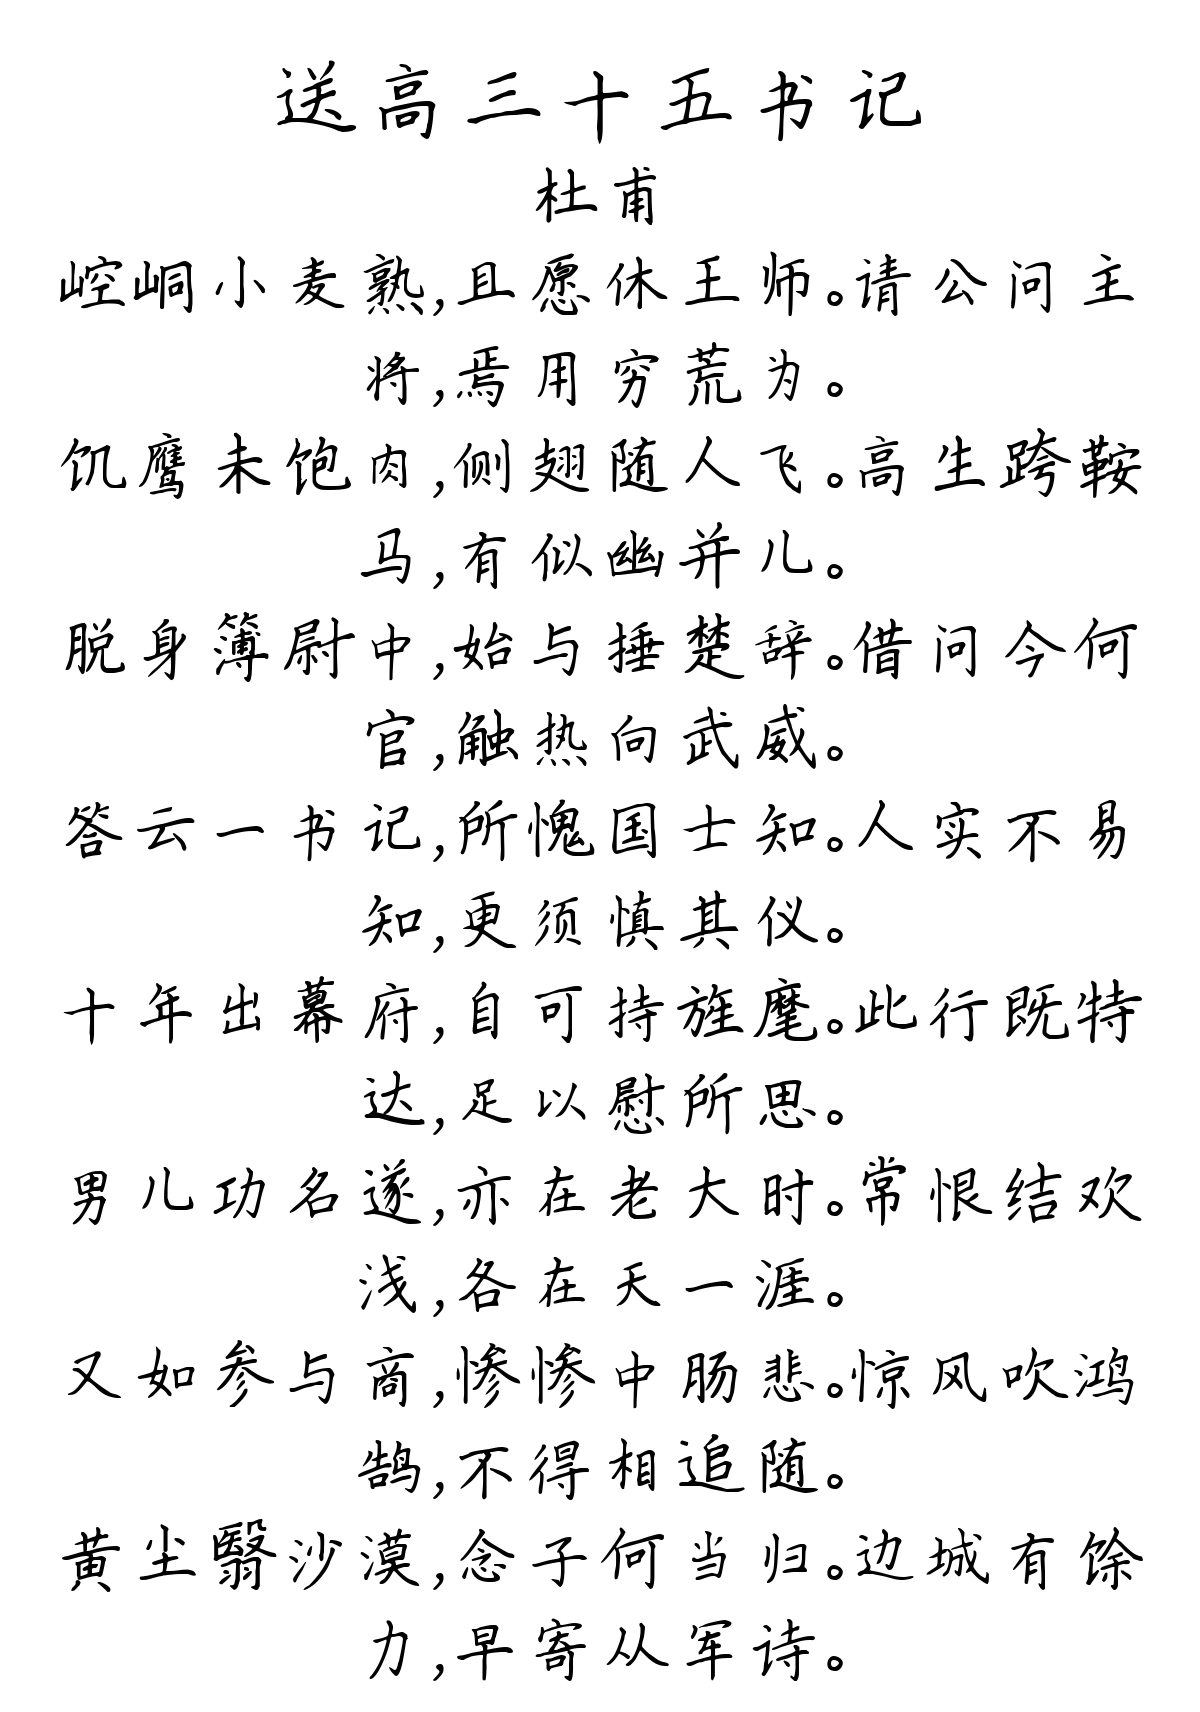 送高三十五书记
杜甫
崆峒小麦熟,且愿休王师。请公问主
将,焉用穷荒为。
饥鹰未饱肉,侧翅随人飞。高生跨鞍
马,有似幽并儿。
脱身簿尉中,始与捶楚辞。借问今何
官,触热向武威。
答云一书记,所愧国士知。人实不易
知,更须慎其仪。
十年出幕府,自可持旌麾。此行既特
达,足以慰所思。
男儿功名遂,亦在老大时。常恨结欢
浅,各在天一涯。
又如参与商,惨惨中肠悲。惊风吹鸿
鹄,不得相追随。
黄尘翳沙漠,念子何当归。边城有馀
力,早寄从军诗。